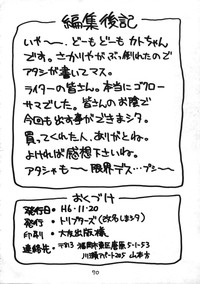 編集後記
いや〜、どーもどーもカトちゃん
です。さかりやがぶっ倒れたので
アタシが書いてマス。
ライターの皆さん。本当にゴクロー
サマでした。皆さんのお陰で
今回も出す事ができまシタ。
買ってくれた人、ありがとね。
よければ感想下さいね。
アタシャも〜限界デス…プシ〜
おくづけ
発行日・H6・11・20
発行・トリプターズ(改名しまシタ)
印刷・大友出版様
連絡先・〒813 福岡市東区唐原5-1-53
川瀬アパート205 山本方
70